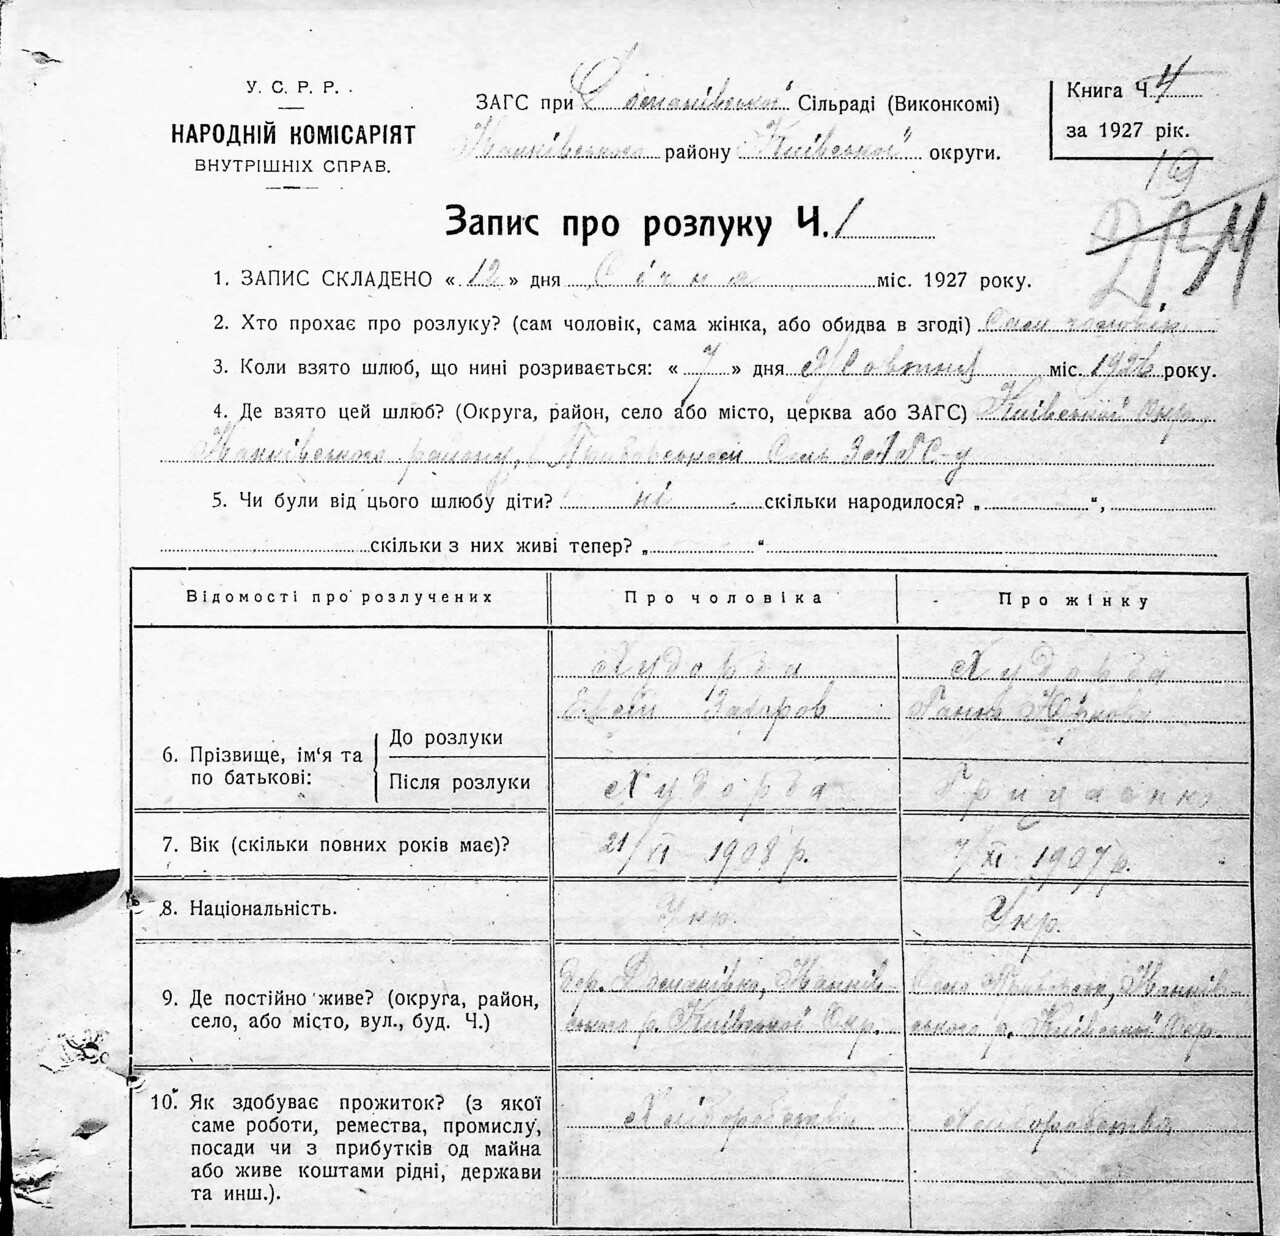 У. С. Р. Р.
НАРОДНІЙ КОМІСАРІЯТ
ВНУТРІШНІХ СПРАВ.
ЗАГС при Сільраді (Виконкомі)
Іванківського району Київської округи.
Книга Ч. 4
за 1927 рік.
19
Запис про розлуку Ч. 1
1. ЗАПИС СКЛАДЕНО « 12 » дня Січня міс. 1927 року.
2. Хто прохає про розлуку? (сам чоловік, сама жінка, або обидва в згоді) Сам чоловік
3. Коли взято шлюб, що нині розривається: « 7 » дня Жовтня міс. 1926 року.
4. Де взято цей шлюб? (Округа, район, село або місто, церква або ЗАГС) Київської Окр.
Іванківського району, в ЗАГС-у
5. Чи були від цього шлюбу діти? ні скільки народилося? „ “,
скільки з них живі тепер? „ “
Відомості про розлучених Про чоловіка Про жінку
Худорба Худорба
Захаров Ганна Юркова
6. Прізвище, ім'я та по батькові: До розлуки
Після розлуки Худорба Гриценко
7. Вік (скільки повних років має)? 21/VI 1908 р. 7/XI 1907 р.
8. Національність. Укр. Укр.
9. Де постійно живе? (округа, район, дер. Іванків- Село Іванків-
село, або місто, вул., буд. Ч.) ського р. Київської Окр. ського р. Київської Окр.
10. Як здобуває прожиток? (з якої Хліборобства Хліборобства
саме роботи, ремества, промислу,
посади чи з прибутків од майна
або живе коштами рідні, держави
та инш.).